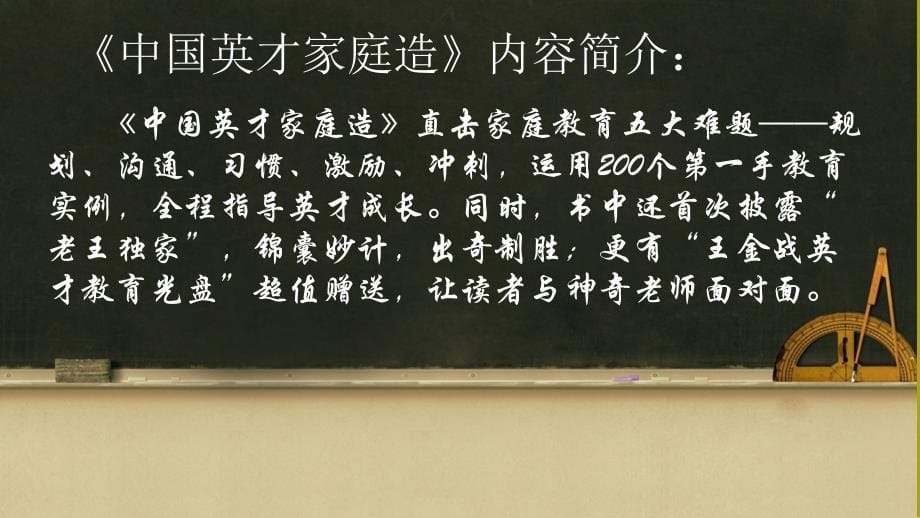 《中国英才家庭造》内容简介：
《中国英才家庭造》直击家庭教育五大难题——规
划、沟通、习惯、激励、冲刺，运用200个第一手教育
实例，全程指导英才成长。同时，书中还首次披露“
老王独家”，锦囊妙计，出奇制胜；更有“王金战英
才教育光盘”超值赠送，让读者与神奇老师面对面。